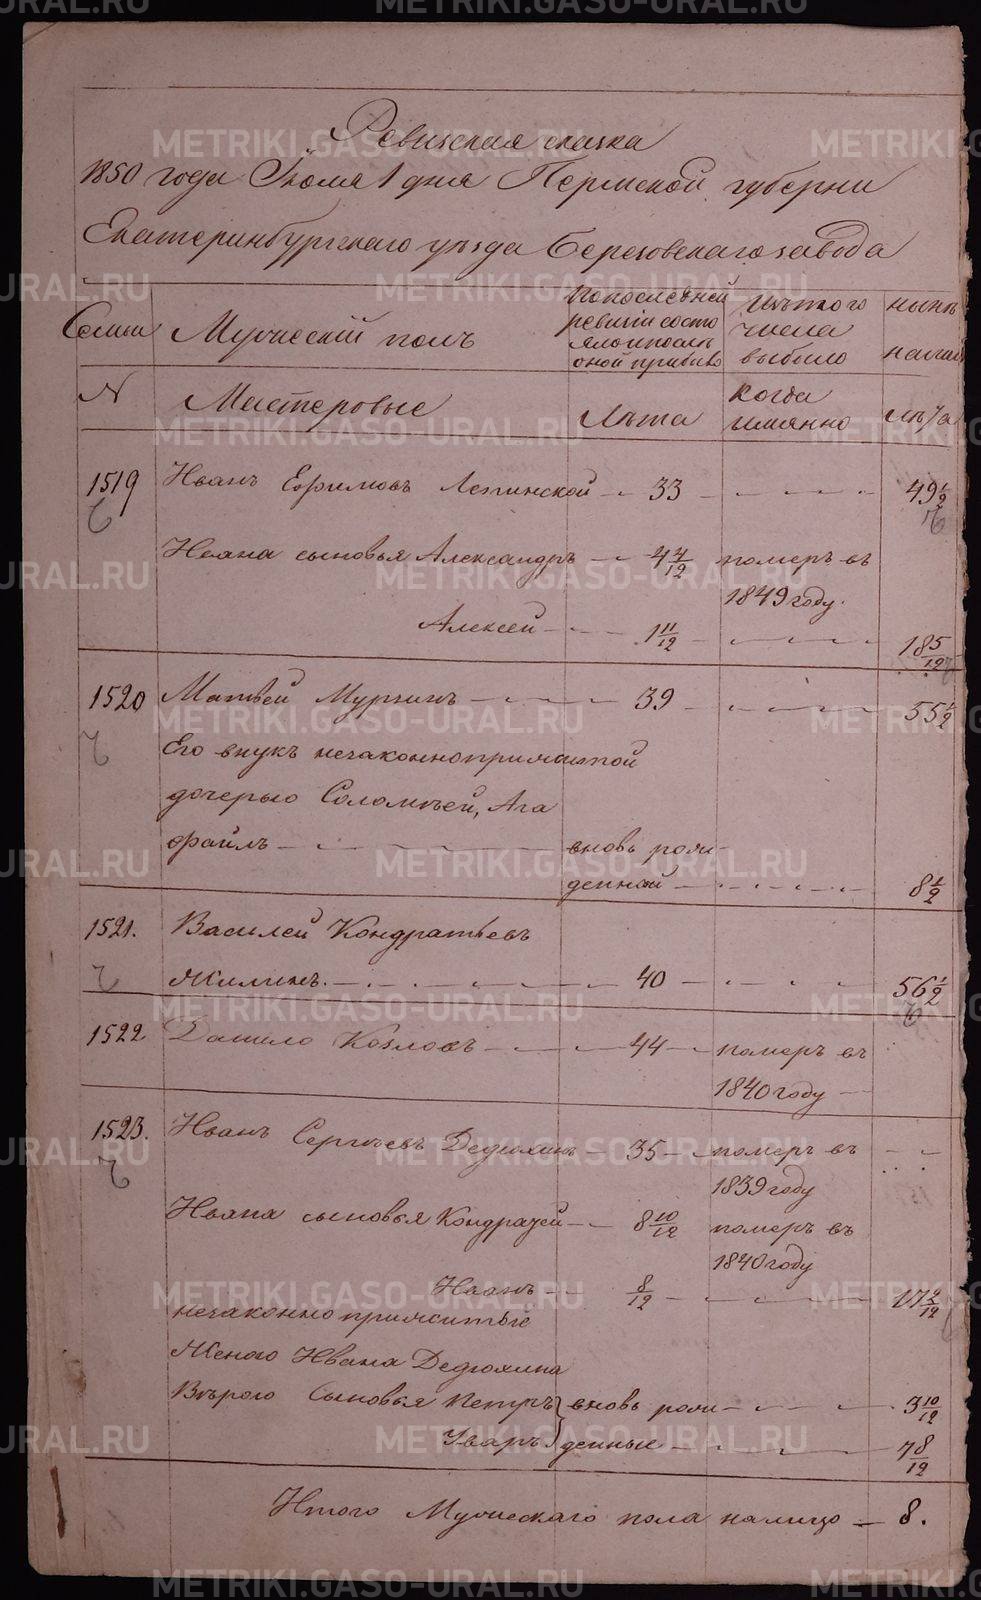 Ревизская сказка
1850 года Июля 1 дня Пермской губернии
Екатеринбургскаго уѣзда Березовскаго завода
Семьи Мужескій полъ По последней ревизіи состояло и после оной прибыло Изъ того числа выбыло ныне на лицо
N Мастеровые Лѣта Когда имянно лѣта
1519 Иванъ Ефимовъ Лепинской 33 49 1/2
Ивана сыновья Александръ 4 7/12 померъ въ
1849 году.
Алексей 1 11/12 18 5/12
1520 Матвей Мурзинъ 39 55 1/2
Его внукъ незаконноприжитой
дочерью Соломіей, Ага
фаилъ вновь рож
денной 8 1/2
1521. Василей Кондратьевъ
Жилинъ. 40 56 1/2
1522 Данило Козловъ 44 померъ въ
1840 году
1523. Иванъ Сергѣевъ Дедюхинъ 35 померъ въ
1839 году
Ивана сыновья Кондратей 8 10/12 померъ въ
1840 году
Иванъ 8/12 17 2/12
незаконно прижитые
Женою Ивана Дедюхина
Вѣрою Сыновья Петръ вновь рож 3 10/12
Уваръ денные 7 8/12
Итого Мужескаго пола налицо 8.
METRIKI.GASO-URAL.RU